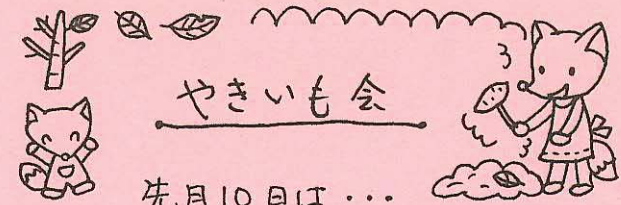 やきいも会
先月10日は・・・